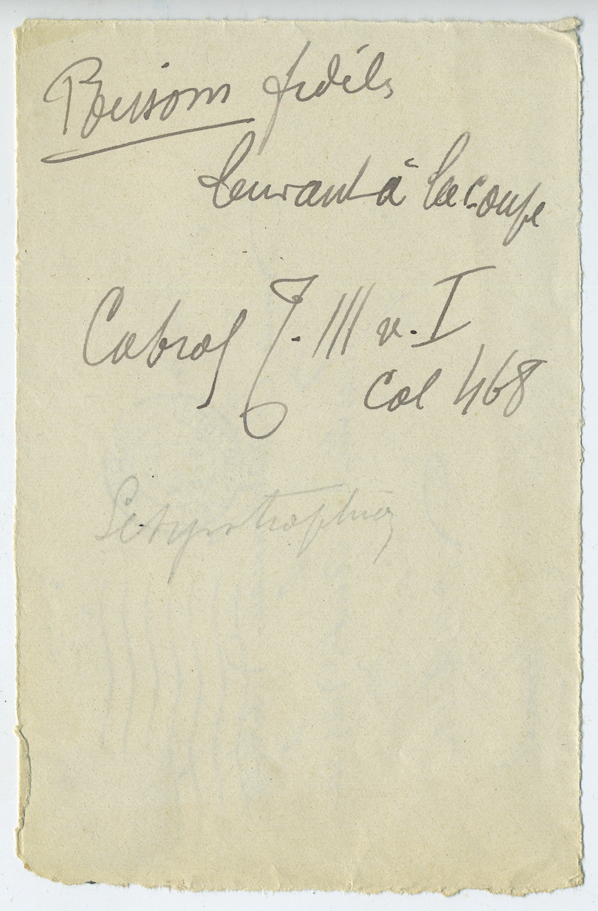 Poissons fidèles
buvant à la coupe
Cabrol T. III v. I
Col 468